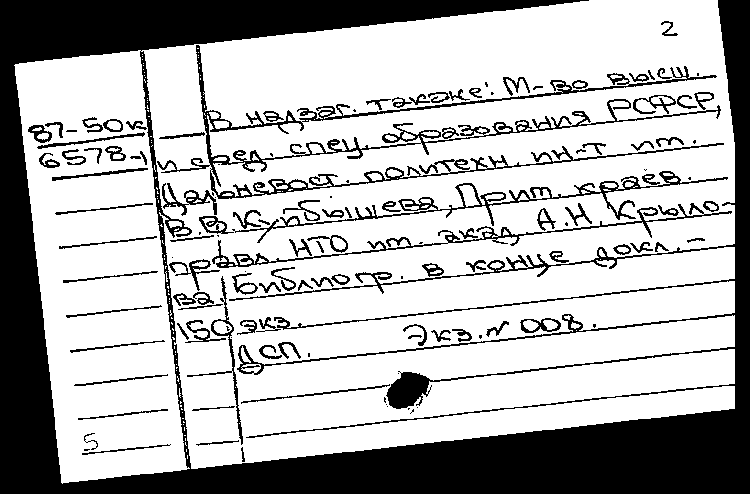 2
87-50к В надзаг. также: М-во высш.
6578-1 и сред. спец. образования РСФСР,
Дальневост. политехн. ин-т им.
В.В. Куйбышева, Прим. краев.
правл. НТО им. акад. А.Н. Крыло-
ва. Библиогр. в конце докл. -
150 экз.
ДСП. Экз. № 008.
5